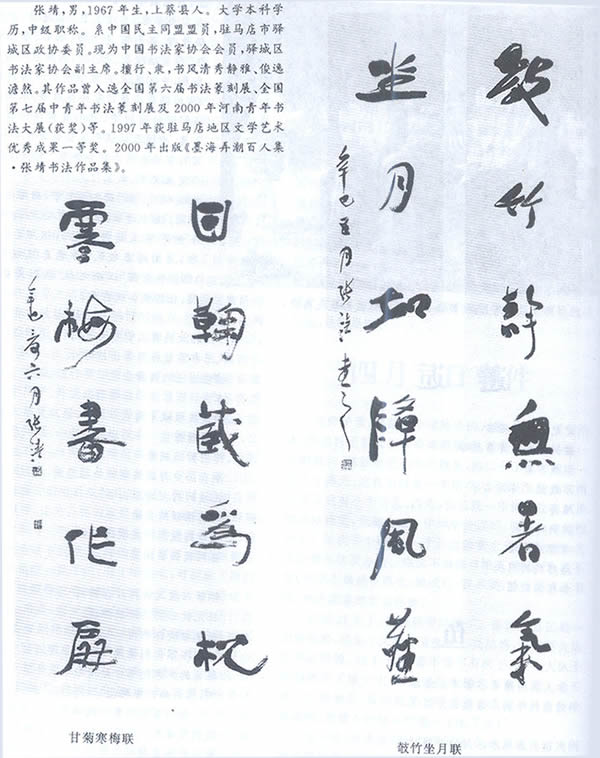 张靖,男,1967年生,上蔡县人。大学本科学
历,中级职称。系中国民主同盟盟员,驻马店市驿
城区政协委员。现为中国书法家协会会员,驿城区
书法家协会副主席。擅行、隶,书风清秀静雅、俊逸
然。其作品曾入选全国第六届书法篆刻展、全国
第七届中青年书法篆刻展及2000年河南青年书
法大展(获奖)等。1997年获驻马店地区文学艺术
优秀成果一等奖。2000年出版《墨海弄潮百人集
·张靖书法作品集》。
竹静無暑氣
坐月障風
辛巳五月张靖书之
甘鞠藏為枕
寒梅書作屏
辛巳六月张靖
甘菊寒梅联
竹坐月联